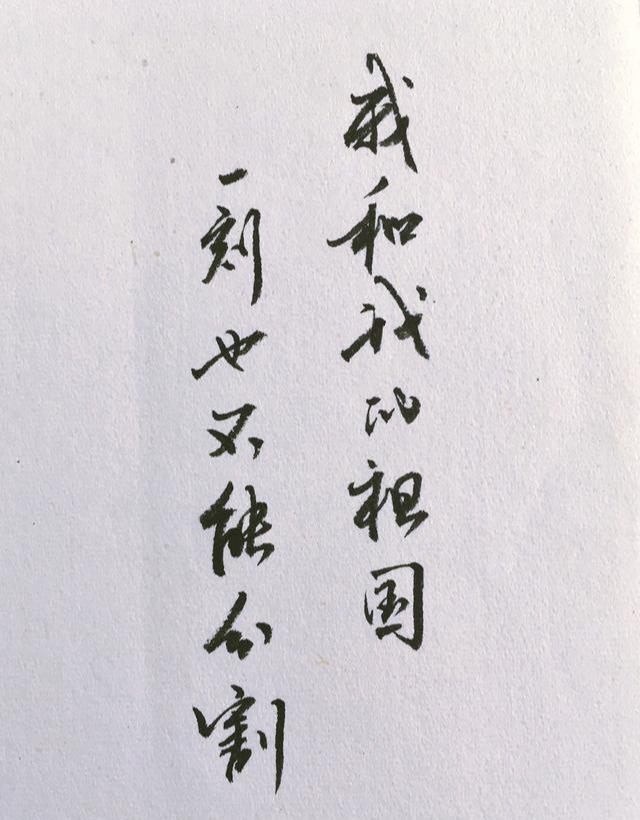 我和我的祖国
一刻也不能分割